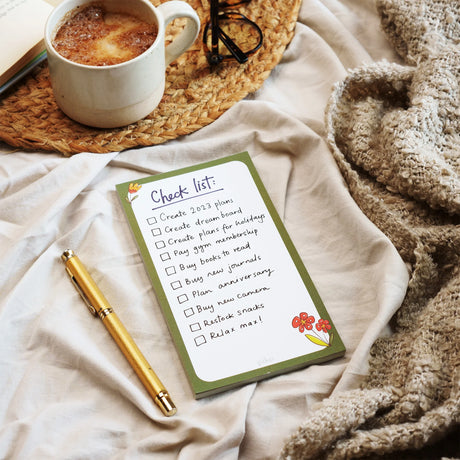 Check list:
Create 2023 plans
Create dream board
Create plans for holidays
Pay gym membership
Buy books to read
Buy new journals
Plan anniversary
Buy new camera
Restock snacks
Relax max!